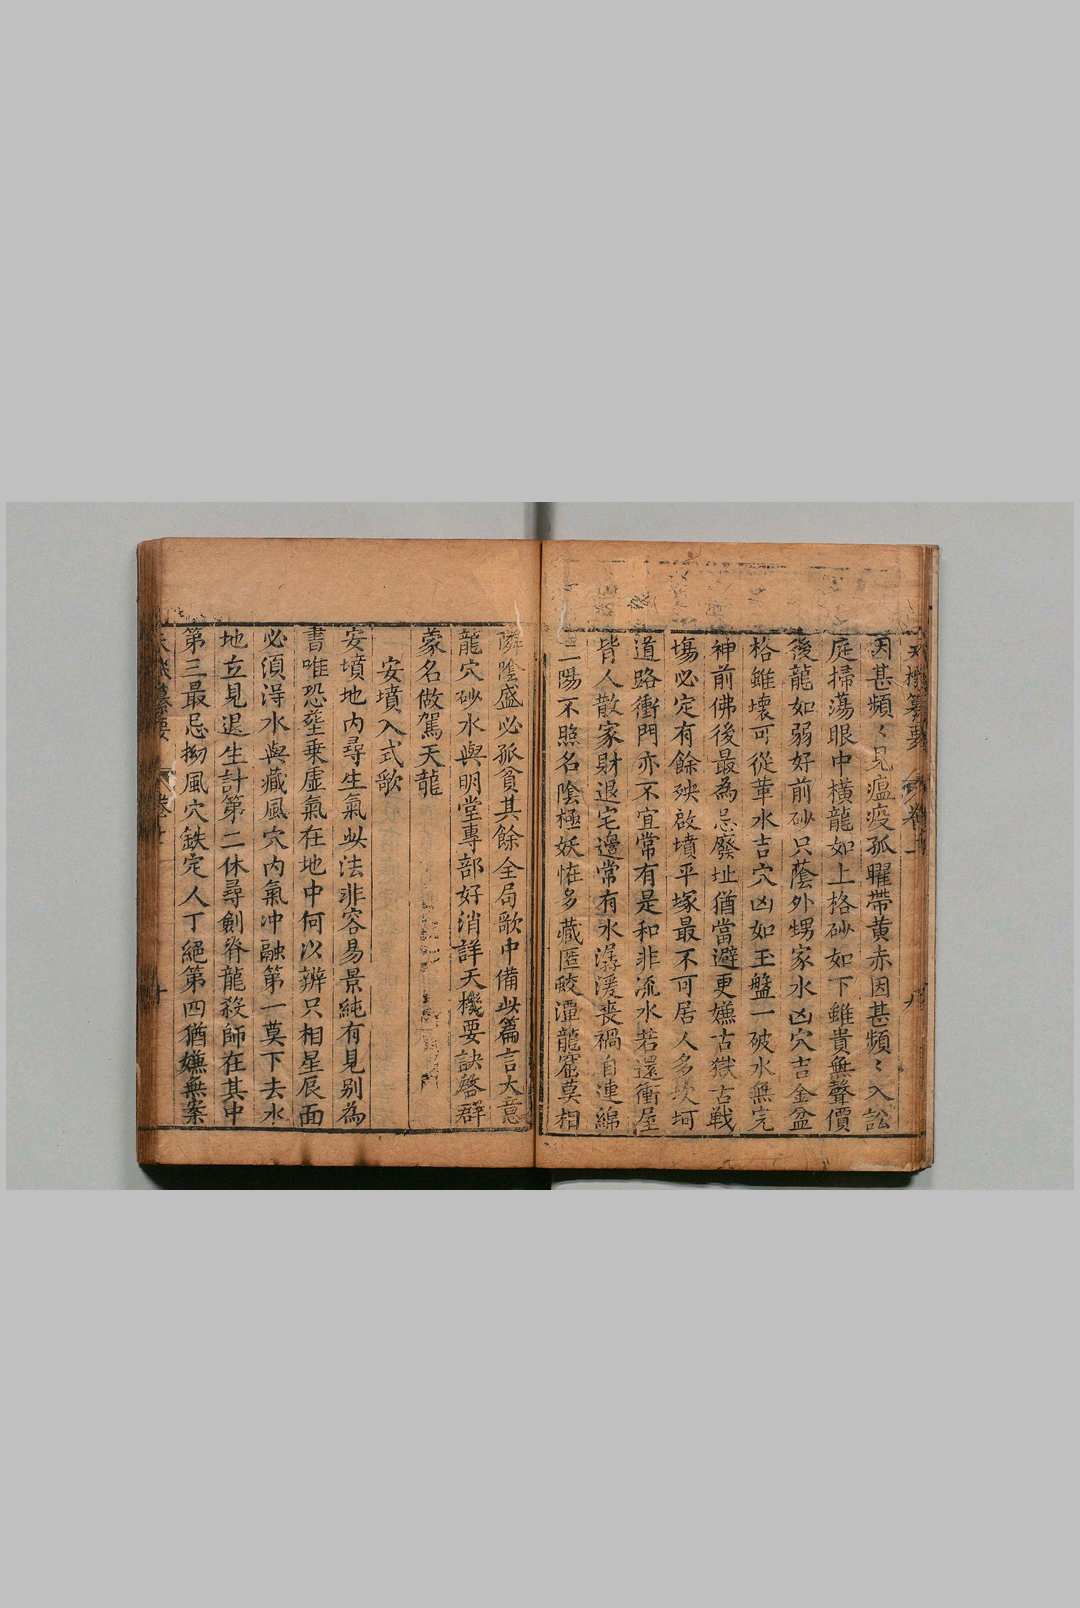 天機纂要 卷一
因甚頻〻見瘟疫孤曜帶黄赤因甚頻〻入訟
庭掃蕩眼中橫龍如上格砂如下雖貴無聲價
後龍如弱好前砂只蔭外甥家水凶穴吉金盆
格雖壞可從革水吉穴凶如玉盤一破水無完
神前佛後最為忌廢址猶當避更嫌古獄古戦
塲必定有餘殃啟墳平塚最不可居人多坎坷
道路衝門亦不宜常有是和非流水若還衝屋
背人散家財退宅邊常有水潺湲喪禍自連綿
二陽不照名陰極妖怪多藏匿
潭龍窟莫相
隣陰盛必孤貧其餘全局歌中備此篇言大意
龍穴砂水與明堂專部好消詳天機要訣
群
蒙名做駕天龍
安墳入式歌
安墳地内尋生氣此法非容易景純有見别為
書唯恐塟乗虚氣在地中何以辨只相星辰面
必須淂水與藏風穴内氣冲融第一莫下去水
地立見退生計第二休尋劍脊龍殺師在其中
第三最忌拗風穴鉄定人丁絕第四猶嫌無案
天機纂要